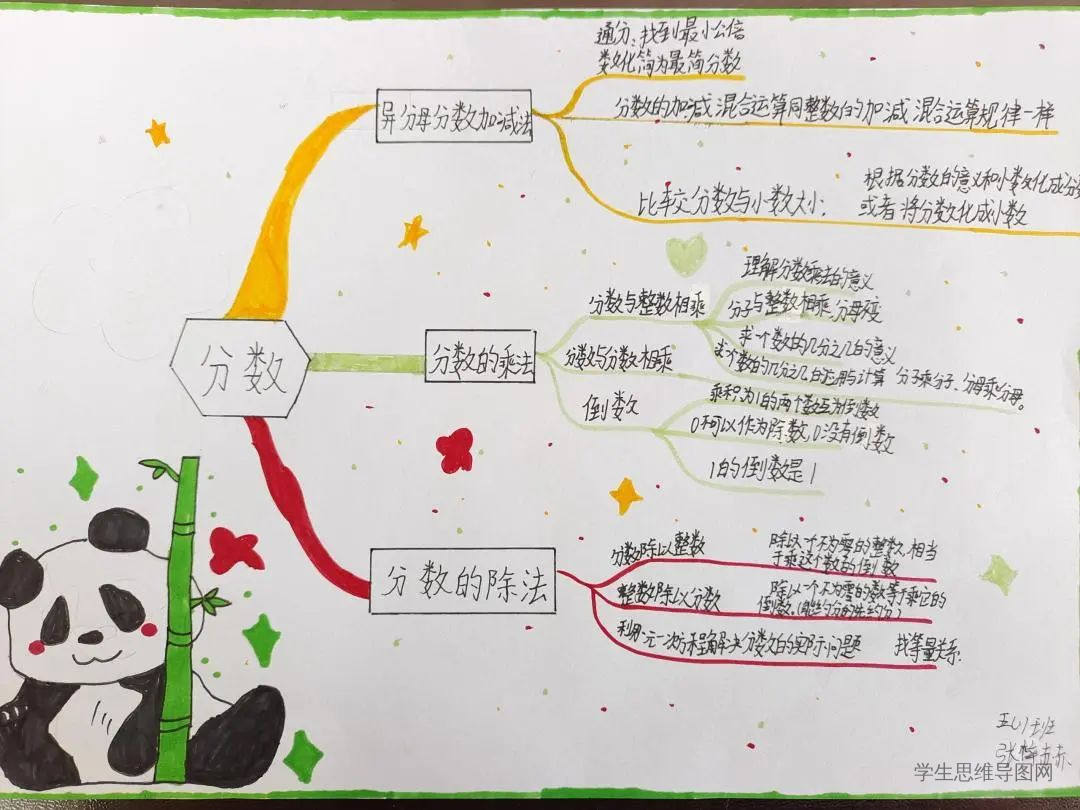 通分：找到最小公倍
数化简为最简分数
异分母分数加减法
分数的加减混合运算同整数的加减混合运算规律一样
根据分数的意义和小数化成分数
比较分数与小数大小：
或者将分数化成小数
理解分数乘法的意义
分数与整数相乘
分子与整数相乘，分母不变
分数
分数的乘法
求一个数的几分之几的意义
分数与分数相乘
求个数的几分之几的应用与计算 分子乘分子、分母乘分母。
倒数
乘积为1的两个数互为倒数
0不可以作为除数，0没有倒数
1的倒数是1
分数的除法
分数除以整数
除以一个不为零的整数，相当
于乘这个数的倒数
整数除以分数
除以一个不为零的数等于乘它的
倒数（能约分的先约分）
利用一元一次方程解决分数的实际问题 找等量关系：
五(1)班
张
学生思维导图网